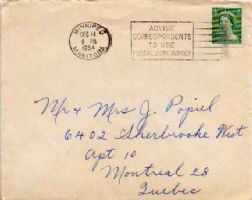 WINNIPEG
DEC 14
6 PM
1954
MANITOBA
ADVISE
CORRESPONDENTS
TO USE
POSTAL ZONE NUMBER
Mr & Mrs J. Popiel
6402 Sherbrooke West
Apt 10
Montreal 28
Quebec